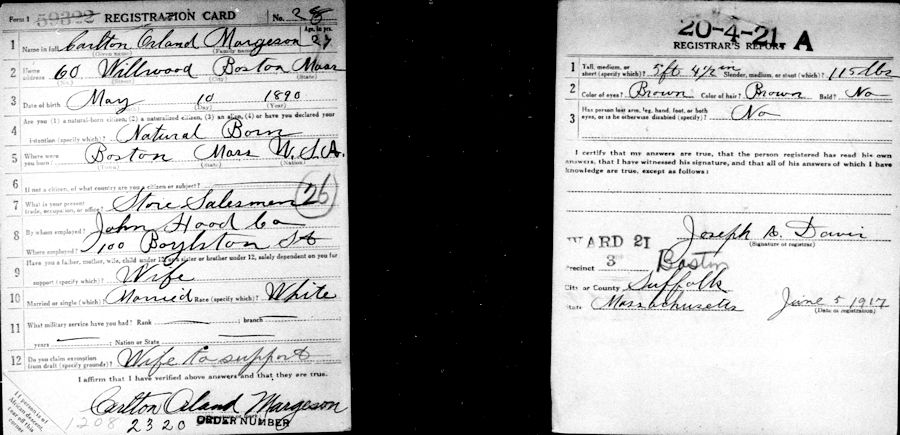 Form 1 59322 REGISTRATION CARD No. 28
1 Name in full Carlton Orland Margeson Age, in yrs. 27
(Given name) (Family name)
2 Home address 60 Willwood Boston Mass
(No.) (Street) (City) (State)
3 Date of birth May 10 1890
(Month) (Day) (Year)
4 Are you (1) a natural-born citizen, (2) a naturalized citizen, (3) an alien, (4) or have you declared your
intention (specify which)? Natural Born
5 Where were you born? Boston Mass U.S.A.
(Town) (State) (Nation)
6 If not a citizen, of what country are you a citizen or subject?
7 What is your present trade, occupation, or office? Store Salesman 26
8 By whom employed? John Hood Co
Where employed? 100 Boylston St
9 Have you a father, mother, wife, child under 12, or a sister or brother under 12, solely dependent on you for
support (specify which)? Wife
10 Married or single (which)? Married Race (specify which)? White
11 What military service have you had? Rank ; branch
years ; Nation or State
12 Do you claim exemption from draft (specify grounds)? Wife to support
I affirm that I have verified above answers and that they are true.
Carlton Orland Margeson
If person is of African descent, tear off this corner
1208 2320 ORDER NUMBER
20-4-21 A
REGISTRAR'S REPORT
1 Tall, medium, or short (specify which)? 5ft 4½in Slender, medium, or stout (which)? 115 lbs
2 Color of eyes? Brown Color of hair? Brown Bald? No
3 Has person lost arm, leg, hand, foot, or both eyes, or is he otherwise disabled (specify)? No
I certify that my answers are true, that the person registered has read his own
answers, that I have witnessed his signature, and that all of his answers of which I have
knowledge are true, except as follows:
Joseph A. Davis
(Signature of registrar)
WARD 21
Precinct 3 Boston
City or County Suffolk
State Massachusetts June 5 1917
(Date of registration)